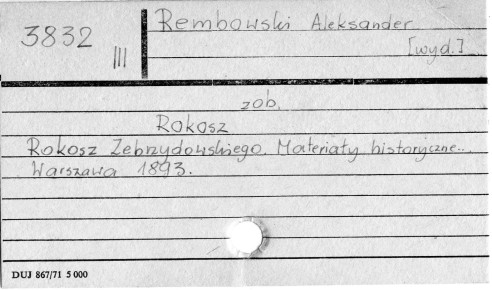 3832
III
Rembowski Aleksander
[wyd.]
zob.
Rokosz
Rokosz Zebrzydowskiego. Materiały historyczne...
Warszawa 1893.
DUJ 867/71 5 000